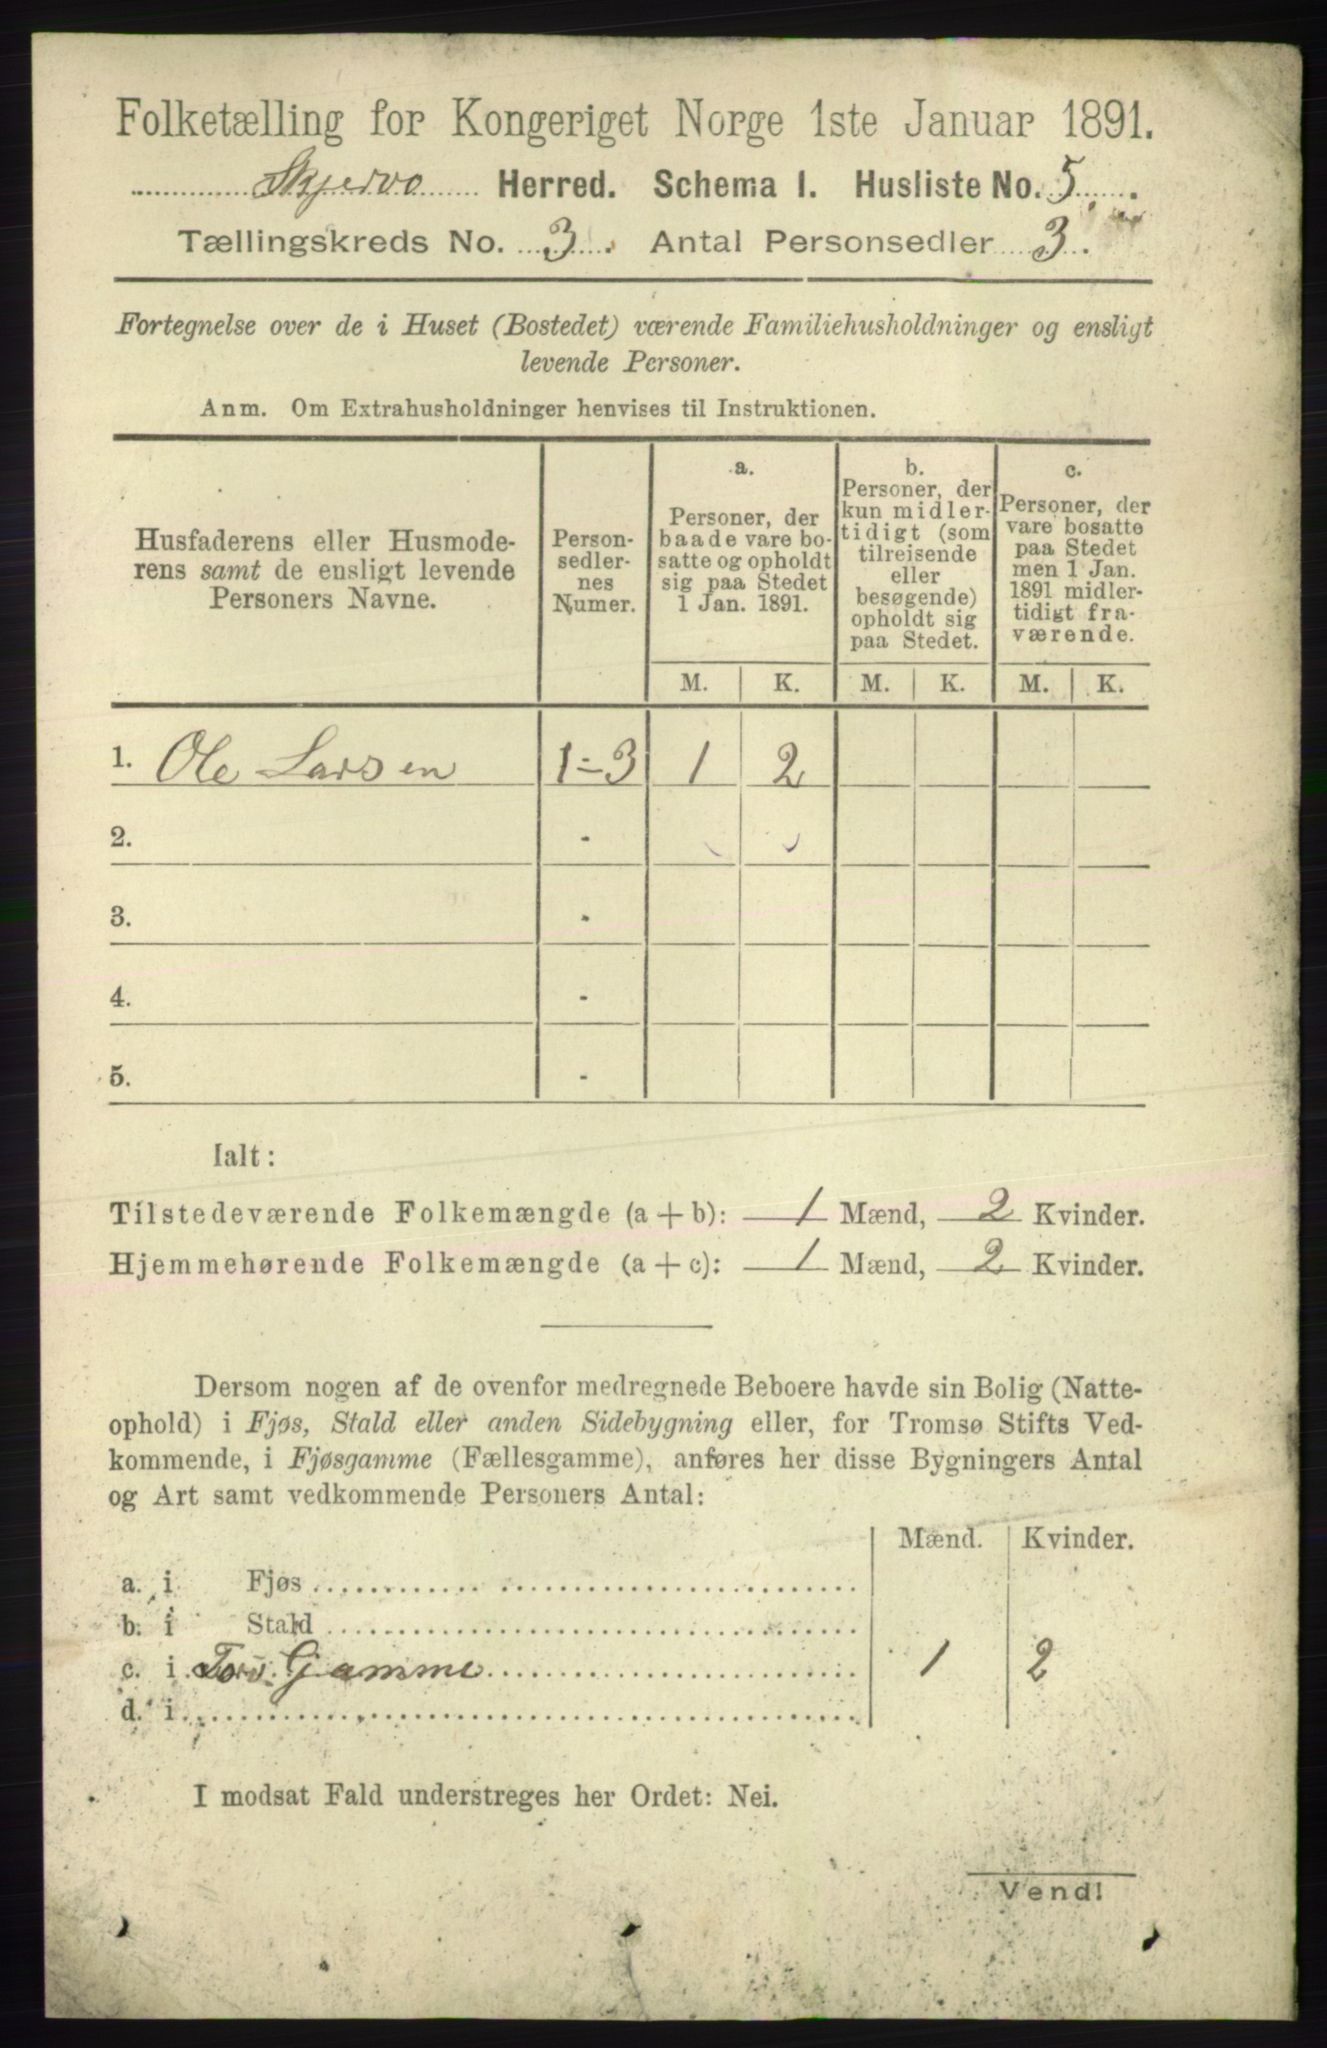 Folketælling for Kongeriget Norge 1ste Januar 1891.
Skjervø Herred. Schema I. Husliste No. 5.
Tællingskreds No. 3. Antal Personsedler 3.
Fortegnelse over de i Huset (Bostedet) værende Familiehusholdninger og ensligt
levende Personer.
Anm. Om Extrahusholdninger henvises til Instruktionen.
Husfaderens eller Husmode-
rens samt de ensligt levende
Personers Navne.
Person-
sedler-
nes
Numer.
a.
Personer, der
baade vare bo-
satte og opholdt
sig paa Stedet
1 Jan. 1891.
b.
Personer, der
kun midler-
tidigt (som
tilreisende
eller
besøgende)
opholdt sig
paa Stedet.
c.
Personer, der
vare bosatte
paa Stedet
men 1 Jan.
1891 midler-
tidigt fra-
værende.
M. K. M. K. M. K.
1. Ole Larsen 1-3 1 2
2. -
3. -
4. -
5. -
Ialt:
Tilstedeværende Folkemængde (a + b): 1 Mænd, 2 Kvinder.
Hjemmehørende Folkemængde (a + c): 1 Mænd, 2 Kvinder.
Dersom nogen af de ovenfor medregnede Beboere havde sin Bolig (Natte-
ophold) i Fjøs, Stald eller anden Sidebygning eller, for Tromsø Stifts Ved-
kommende, i Fjøsgamme (Fællesgamme), anføres her disse Bygningers Antal
og Art samt vedkommende Personers Antal:
Mænd. Kvinder.
a. i Fjøs
b. i Stald
c. i Torv Gamme 1 2
d. i
I modsat Fald understreges her Ordet: Nei.
Vend!